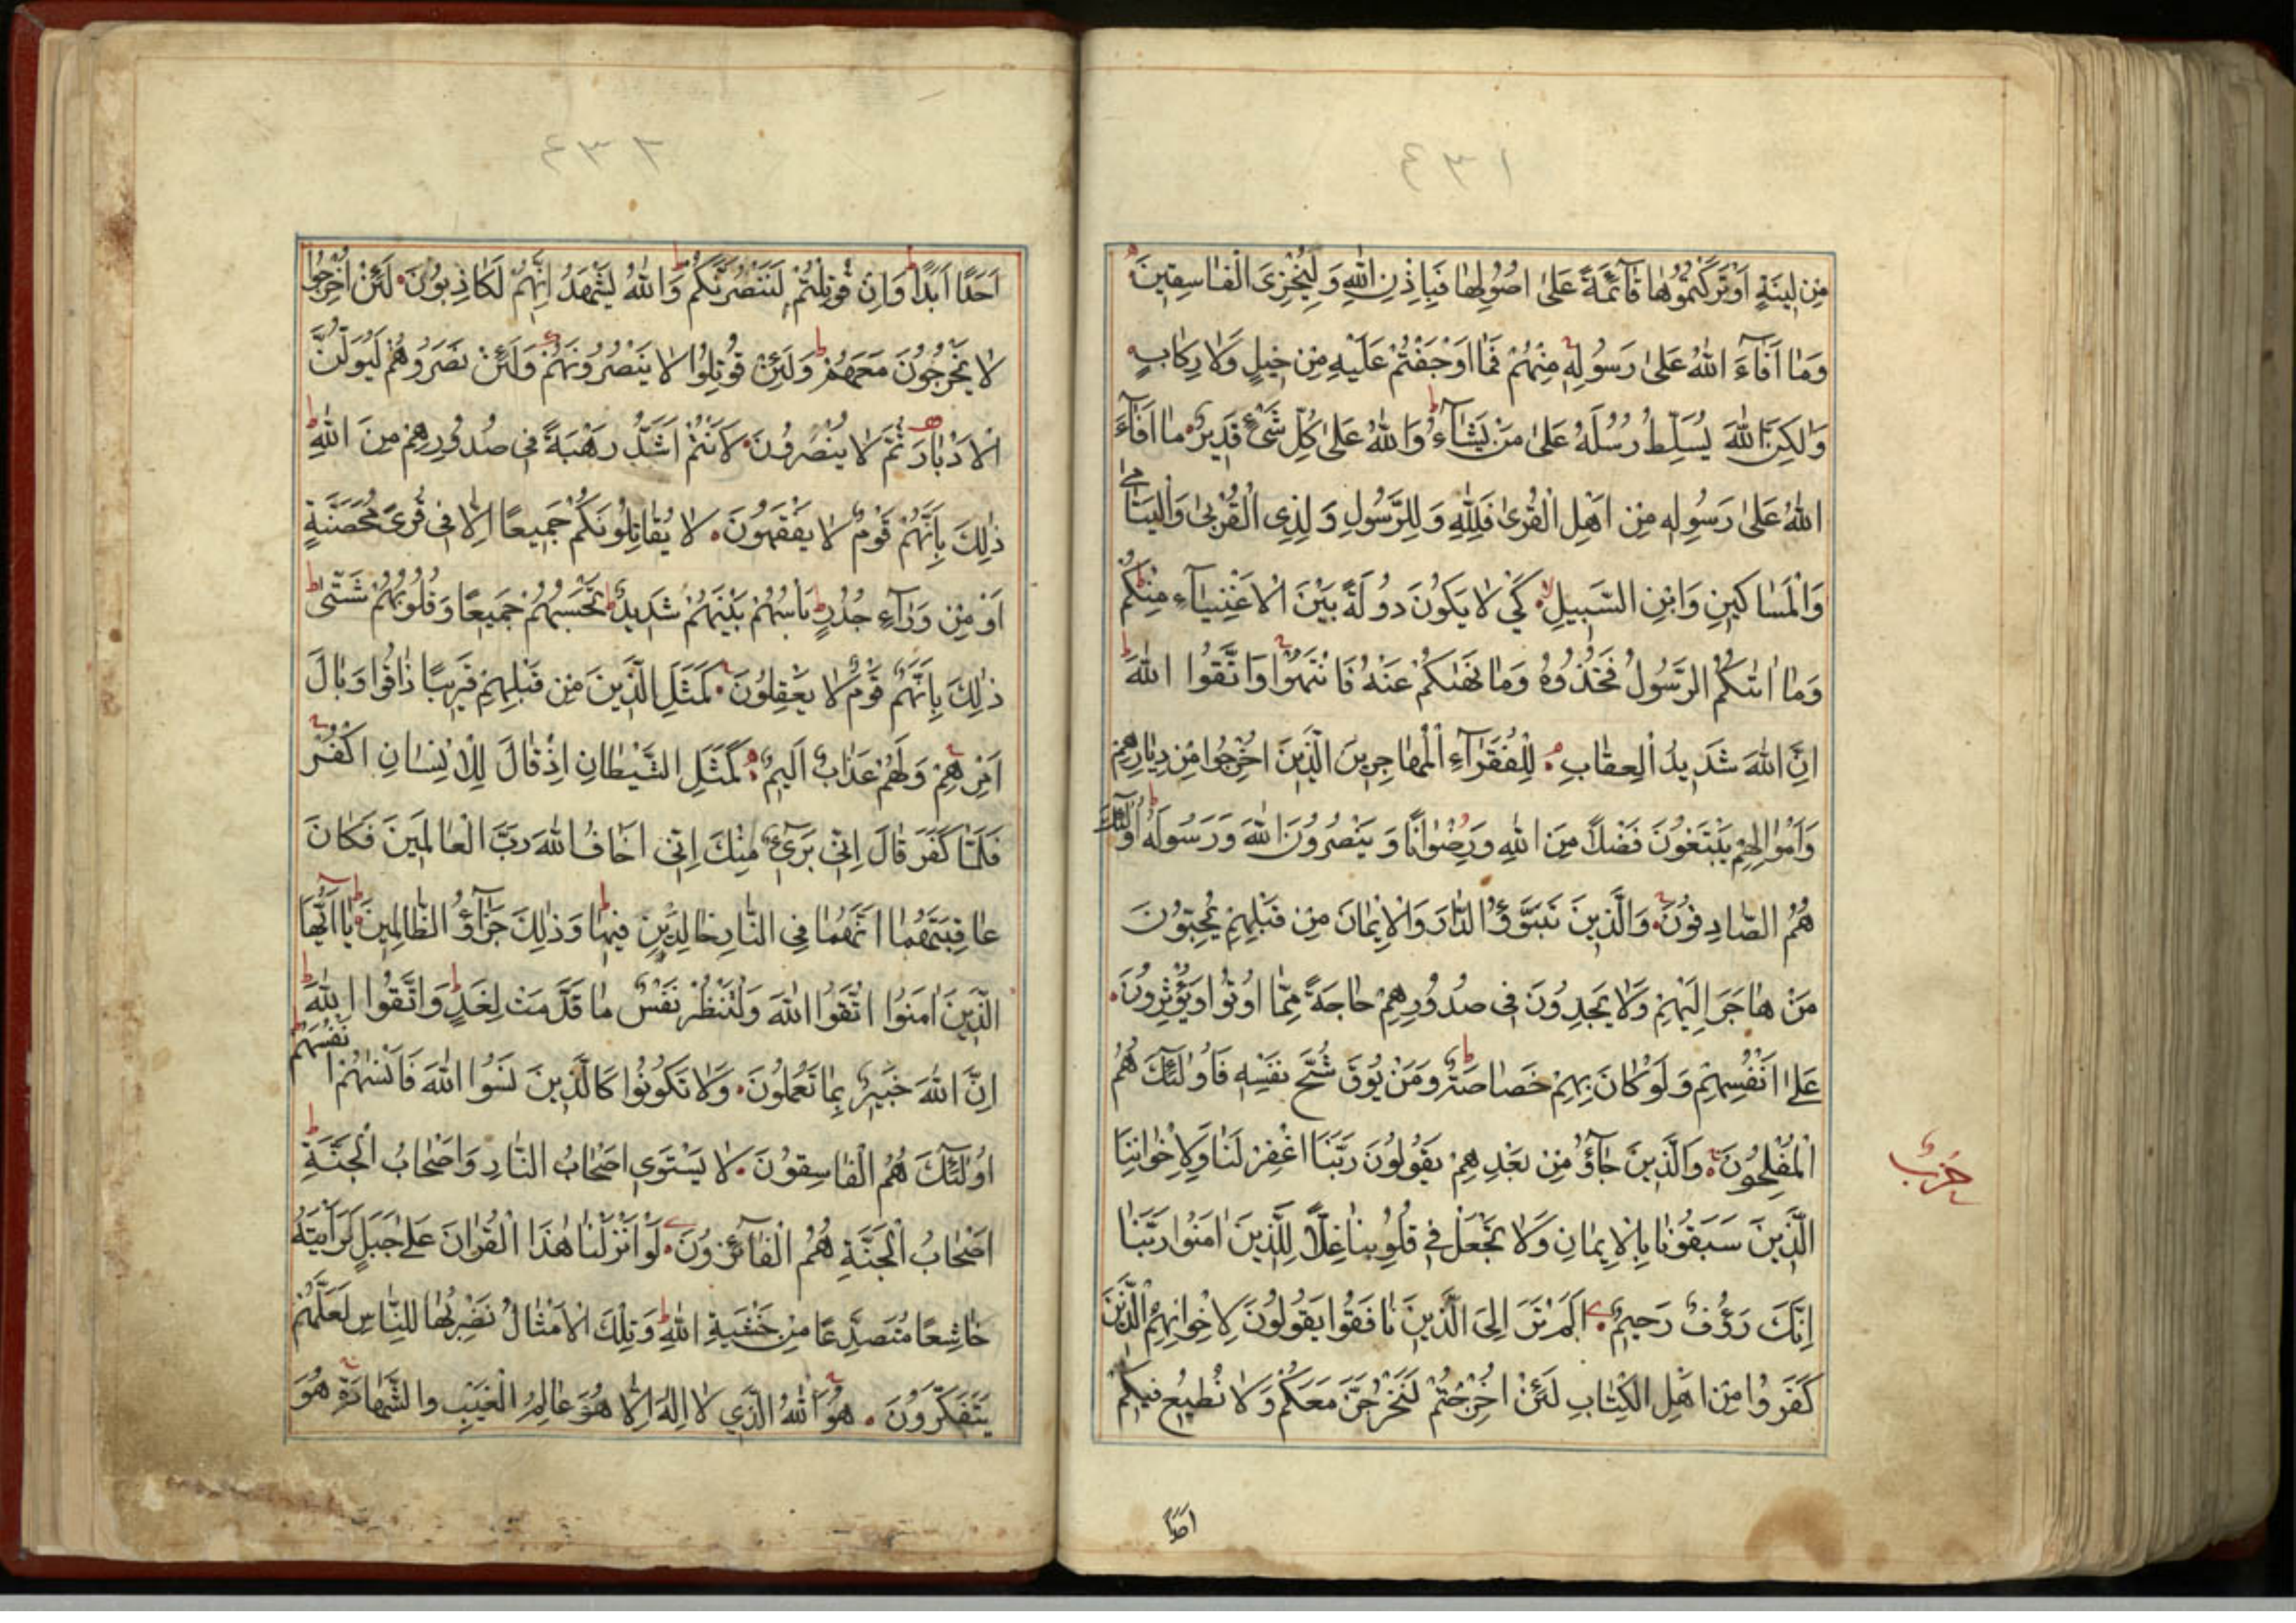 ٤٣١
مِنْ لِينَةٍ اَوْ تَرَكْتُمُوهَا قَآئِمَةً عَلٰى اُصُولِهَا فَبِاِذْنِ اللّٰهِ وَلِيُخْزِىَ الْفَاسِقِينَ
وَمَا اَفَآءَ اللّٰهُ عَلٰى رَسُولِهِ مِنْهُمْ فَمَا اَوْجَفْتُمْ عَلَيْهِ مِنْ خَيْلٍ وَلَا رِكَابٍ
وَلٰكِنَّ اللّٰهَ يُسَلِّطُ رُسُلَهُ عَلٰى مَنْ يَشَآءُ ط وَاللّٰهُ عَلٰى كُلِّ شَىْءٍ قَدِيرٌ مَا اَفَآءَ
اللّٰهُ عَلٰى رَسُولِهِ مِنْ اَهْلِ الْقُرٰى فَلِلّٰهِ وَلِلرَّسُولِ وَلِذِى الْقُرْبٰى وَالْيَتَامٰى
وَالْمَسَاكِينِ وَابْنِ السَّبِيلِ لا كَىْ لَا يَكُونَ دُولَةً بَيْنَ الْاَغْنِيَآءِ مِنْكُمْ ط
وَمَا اٰتٰىكُمُ الرَّسُولُ فَخُذُوهُ وَمَا نَهٰىكُمْ عَنْهُ فَانْتَهُوا وَاتَّقُوا اللّٰهَ ط
اِنَّ اللّٰهَ شَدِيدُ الْعِقَابِ لِلْفُقَرَآءِ الْمُهَاجِرِينَ الَّذِينَ اُخْرِجُوا مِنْ دِيَارِهِمْ
وَاَمْوَالِهِمْ يَبْتَغُونَ فَضْلًا مِنَ اللّٰهِ وَرِضْوَانًا وَيَنْصُرُونَ اللّٰهَ وَرَسُولَهُ ط اُولٰٓئِكَ
هُمُ الصَّادِقُونَ وَالَّذِينَ تَبَوَّؤُ الدَّارَ وَالْاِيمَانَ مِنْ قَبْلِهِمْ يُحِبُّونَ
مَنْ هَاجَرَ اِلَيْهِمْ وَلَا يَجِدُونَ فِى صُدُورِهِمْ حَاجَةً مِمَّا اُوتُوا وَيُؤْثِرُونَ
عَلٰى اَنْفُسِهِمْ وَلَوْ كَانَ بِهِمْ خَصَاصَةٌ ط وَمَنْ يُوقَ شُحَّ نَفْسِهِ فَاُولٰٓئِكَ هُمُ
الْمُفْلِحُونَ وَالَّذِينَ جَآؤُ مِنْ بَعْدِهِمْ يَقُولُونَ رَبَّنَا اغْفِرْ لَنَا وَلِاِخْوَانِنَا
حزب
الَّذِينَ سَبَقُونَا بِالْاِيمَانِ وَلَا تَجْعَلْ فِى قُلُوبِنَا غِلًّا لِلَّذِينَ اٰمَنُوا رَبَّنَا
اِنَّكَ رَؤُفٌ رَحِيمٌ اَلَمْ تَرَ اِلَى الَّذِينَ نَافَقُوا يَقُولُونَ لِاِخْوَانِهِمُ الَّذِينَ
كَفَرُوا مِنْ اَهْلِ الْكِتَابِ لَئِنْ اُخْرِجْتُمْ لَنَخْرُجَنَّ مَعَكُمْ وَلَا نُطِيعُ فِيكُمْ
٤٣٢
اَحَدًا اَبَدًا ط وَاِنْ قُوتِلْتُمْ لَنَنْصُرَنَّكُمْ ط وَاللّٰهُ يَشْهَدُ اِنَّهُمْ لَكَاذِبُونَ لَئِنْ اُخْرِجُوا
لَا يَخْرُجُونَ مَعَهُمْ ط وَلَئِنْ قُوتِلُوا لَا يَنْصُرُونَهُمْ وَلَئِنْ نَصَرُوهُمْ لَيُوَلُّنَّ
الْاَدْبَارَ ثُمَّ لَا يُنْصَرُونَ لَاَنْتُمْ اَشَدُّ رَهْبَةً فِى صُدُورِهِمْ مِنَ اللّٰهِ ط
ذٰلِكَ بِاَنَّهُمْ قَوْمٌ لَا يَفْقَهُونَ لَا يُقَاتِلُونَكُمْ جَمِيعًا اِلَّا فِى قُرًى مُحَصَّنَةٍ
اَوْ مِنْ وَرَآءِ جُدُرٍ ط بَاْسُهُمْ بَيْنَهُمْ شَدِيدٌ ط تَحْسَبُهُمْ جَمِيعًا وَقُلُوبُهُمْ شَتّٰى ط
ذٰلِكَ بِاَنَّهُمْ قَوْمٌ لَا يَعْقِلُونَ كَمَثَلِ الَّذِينَ مِنْ قَبْلِهِمْ قَرِيبًا ذَاقُوا وَبَالَ
اَمْرِهِمْ وَلَهُمْ عَذَابٌ اَلِيمٌ كَمَثَلِ الشَّيْطَانِ اِذْ قَالَ لِلْاِنْسَانِ اكْفُرْ
فَلَمَّا كَفَرَ قَالَ اِنِّى بَرِىٓءٌ مِنْكَ اِنِّى اَخَافُ اللّٰهَ رَبَّ الْعَالَمِينَ فَكَانَ
عَاقِبَتَهُمَا اَنَّهُمَا فِى النَّارِ خَالِدَيْنِ فِيهَا ط وَذٰلِكَ جَزَآؤُ الظَّالِمِينَ يَا اَيُّهَا
الَّذِينَ اٰمَنُوا اتَّقُوا اللّٰهَ وَلْتَنْظُرْ نَفْسٌ مَا قَدَّمَتْ لِغَدٍ ط وَاتَّقُوا اللّٰهَ ط
اِنَّ اللّٰهَ خَبِيرٌ بِمَا تَعْمَلُونَ وَلَا تَكُونُوا كَالَّذِينَ نَسُوا اللّٰهَ فَاَنْسٰيهُمْ اَنْفُسَهُمْ ط
اُولٰٓئِكَ هُمُ الْفَاسِقُونَ لَا يَسْتَوِى اَصْحَابُ النَّارِ وَاَصْحَابُ الْجَنَّةِ ط
اَصْحَابُ الْجَنَّةِ هُمُ الْفَآئِزُونَ لَوْ اَنْزَلْنَا هٰذَا الْقُرْاٰنَ عَلٰى جَبَلٍ لَرَاَيْتَهُ
خَاشِعًا مُتَصَدِّعًا مِنْ خَشْيَةِ اللّٰهِ ط وَتِلْكَ الْاَمْثَالُ نَضْرِبُهَا لِلنَّاسِ لَعَلَّهُمْ
يَتَفَكَّرُونَ هُوَ اللّٰهُ الَّذِى لَا اِلٰهَ اِلَّا هُوَ عَالِمُ الْغَيْبِ وَالشَّهَادَةِ هُوَ